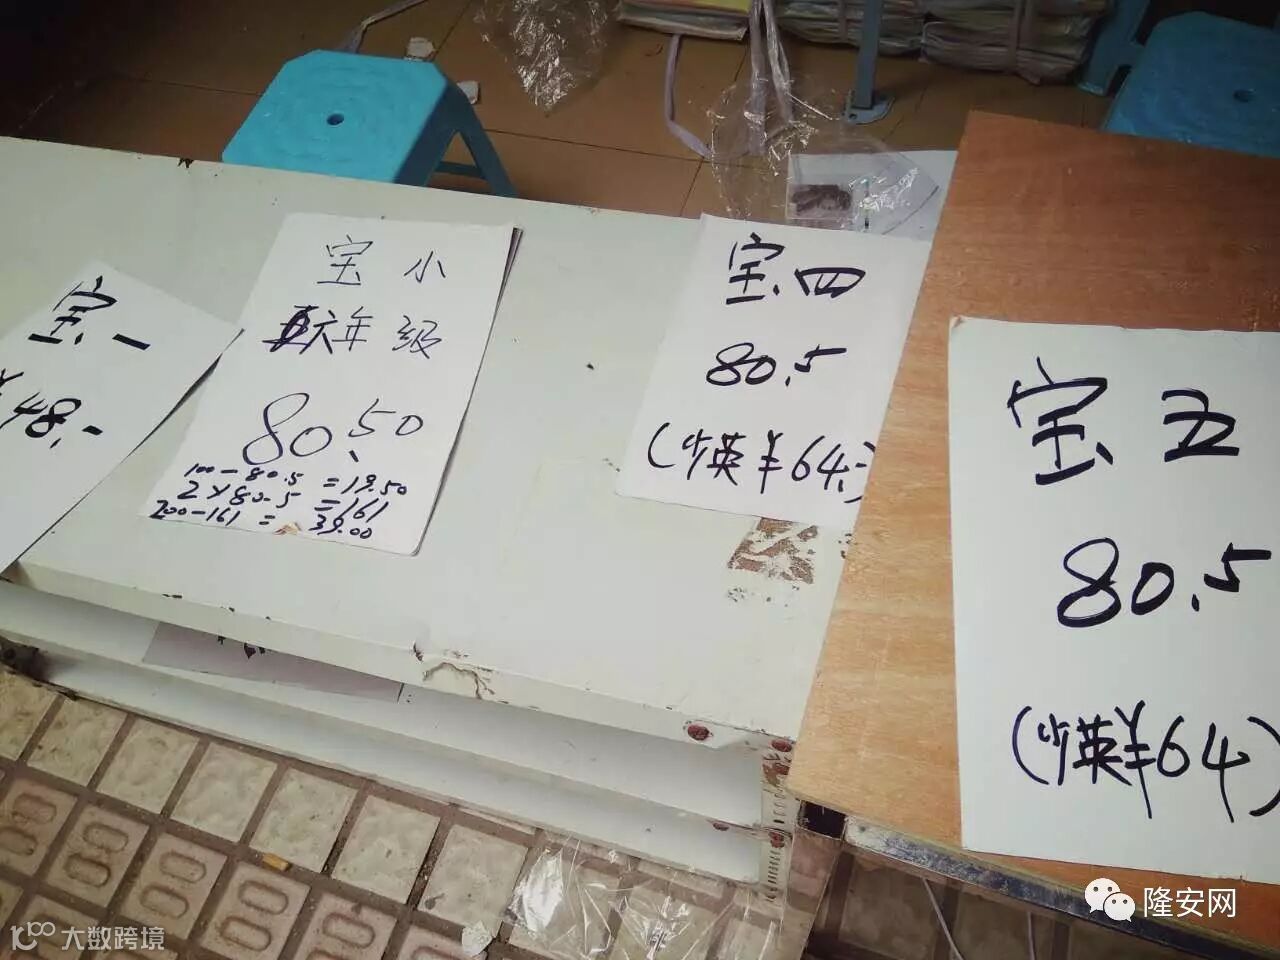 宝一
¥48.-
宝小
六年级
80.50
100-80.5=19.50
2×80.5=161
200-161=39.00
宝四
80.5
(少英¥64.-)
宝五
80.5
(少英¥64)
隆安网
大数跨境